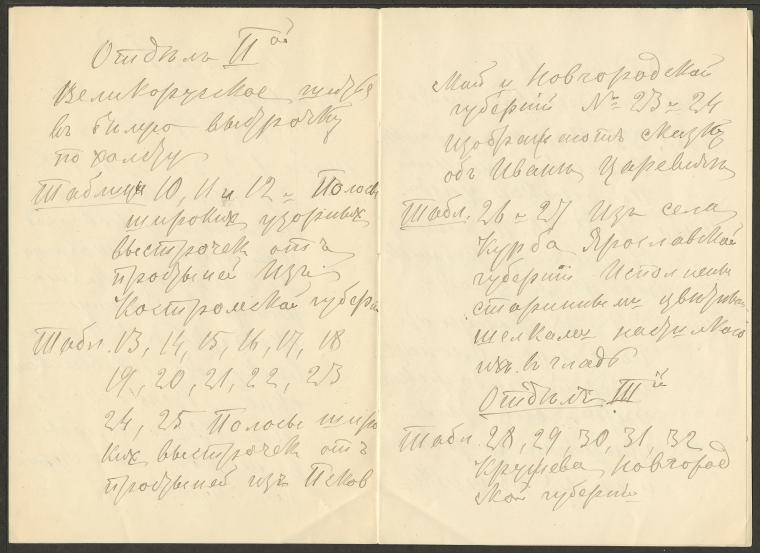 Отдѣлъ IIой
Великорусское шитье
въ бѣлую выстрочку
по холсту
Таблицы 10, 11 и 12 - Полосы
широких узорных
выстрочек отъ
простыней Изъ
Костромской губерн
Табл. 13, 14, 15, 16, 17, 18
19, 20, 21, 22, 23
24, 25 Полосы широ
ких выстрочек отъ
простыней изъ Псков
ской и Новгородской
губерній № 23 и 24
Изображаютъ сказку
объ Иванѣ Царевичѣ
Табл. 26 и 27 Изъ села
Курба Ярославской
губерніи Исполнены
старинными цвѣтны
шелками
въ гладь
Отдѣлъ IIIй
Табл. 28, 29, 30, 31, 32
Кружева Новгород
ской губерніи